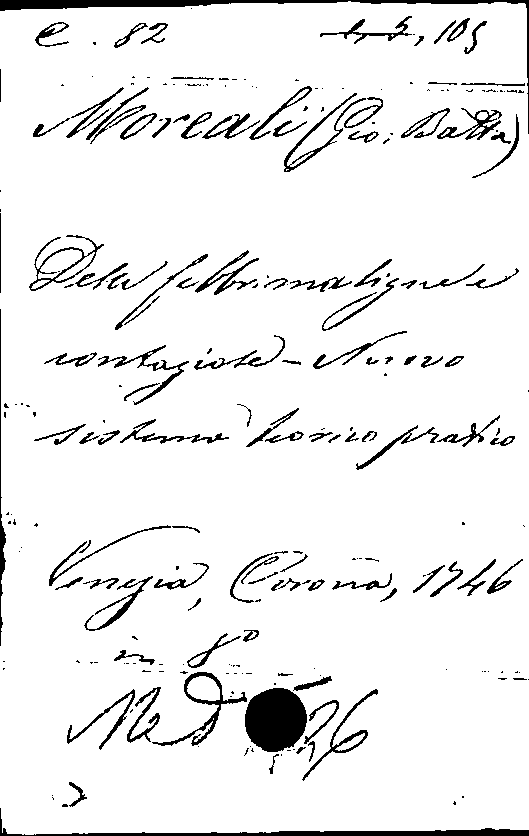 C. 82 105
Moreali (Gio: Batta)
Delle febbri maligne e
contagiose - Nuovo
sistema teorico pratico
Venezia, Corona, 1746
in 8º
Med 26